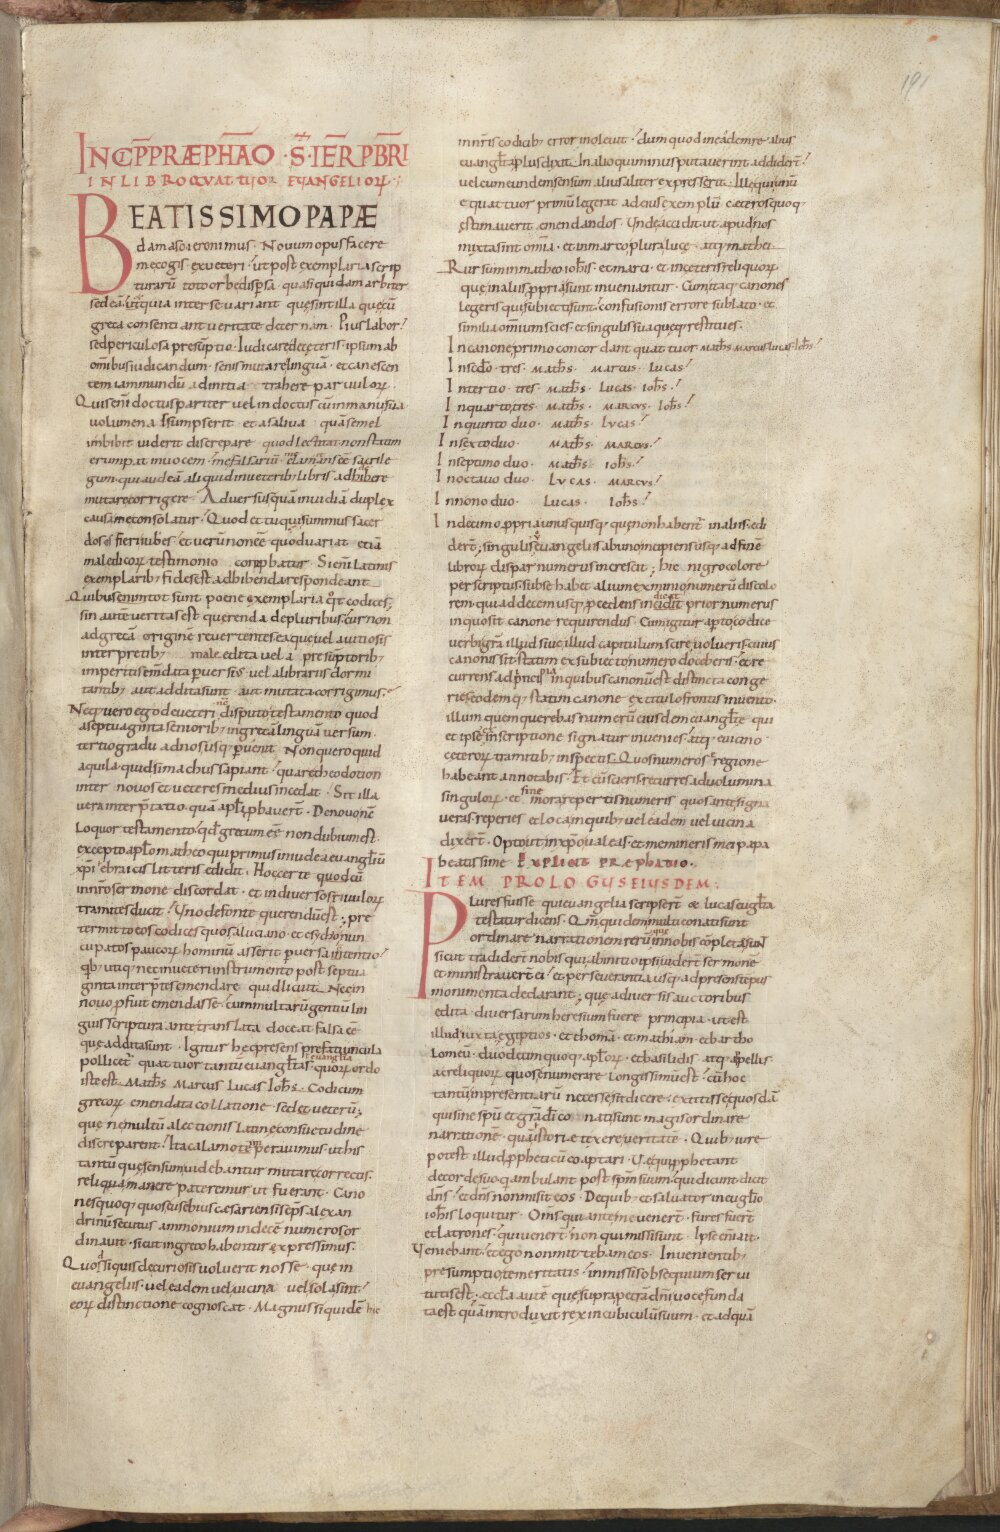 191
INCP PRÆPHAO · S · IER PBRI
IN LIBRO QVATTUOR EVANGELIORꝜ
BEATISSIMO PAPÆ
damaso ieronimus · Novum opus facere
me cogis ex veteri · ut post exemplaria scrip
turarū toto orbe dispersa quasi quidam arbiter
sedeā · et quia inter se variant · quę sint illa quę cū
greca consentiant veritate decernam · Pius labor ·
sed periculosa presūptio · Iudicare de ceteris · ipsum ab
omībus iudicandum · senis mutare linguā · et canescen
tem iam mundū ad initia trahere parvulorꝝ ·
Quis enī doctus pariter vel indoctus cū in manus sua
volumen assumpserit et a saliva quā semel
imbibit viderit discrepare quod lectitat non statim
erumpat in vocem · me falsariū me clamans eē sacrile
gum qui audeā aliquid in veteribꝫ libris addere
mutare corrigere · Adversus quā invidiā duplex
causa me consolatur · Quod et tu qui summus sacer
dos es fieri iubes · et verū non eē quod variat etiā
maledicorꝝ testimonio conprobatur · Si enī latinis
exemplaribꝫ fides est adhibenda respondeant
Quibus enim tot sunt poene exemplaria qͦt codices ;
sin autē veritas est querenda de pluribus cur non
ad grecā originē revertentes ea quę vel a vitiosis
interpretibꝫ male edita vel a presūptoribꝫ
imperitis emdata pversius vel a librariis dormi
tantibꝫ aut addita sunt aut mutata corrigimus ·
Neqꝫ vero ego de veteri disputo testamento quod
a septuaginta senioribꝫ in grecā linguā versum
tertio gradu ad nos usqꝫ pvenit · Non quero quid
aquila quid simachus sapiant · quare theodotion
inter novos et veteres medius incedat · Sit illa
vera interptatio quā apli pbavert · De novo nē
loquor testamento qd grecum eē non dubium est ·
excepto aplo matheo qui primus in iudea evangliū
xpi ebraicis litteris edidit · Hoc certe quod cū
in nrō sermone discordat · et in diversos rivulorꝝ
tramites ducit · Uno de fonte querendū est ; pre
termitto eos codices quos a luciano et esychio nun
cupatos paucorꝝ hominū asserit pversa intentio ·
qbꝫ utiqꝫ nec in veteri instrumento post septua
ginta interptes emendare quid licuit · Nec in
novo pfuit emendasse · cum multarū gentiū lin
guis scriptura ante translata doceat falsa eē
quę addita sunt · Igitur hęc presens prefatiuncula
pollicetͬ quattuor tantū evanglia · quorꝝ ordo
iste est · Maths Marcus Lucas Iohs · Codicum
grecorꝝ emendata collatione sed et veterū ;
quę nē multū a lectionis latinę consuetudine
discreparent · Ita calamo temperavimus ut his
tantū quę sensum videbantur mutare correctis ·
reliqua manere pateremur ut fuerant · Cano
nes quoqꝫ quos eusebius cęsariensis eps alexan
drinū secutus ammonium in decē numeros or
dinavit · sicut in greco habentur expressimus ·
Quo siquis de curiosis voluerit nosse · quę in
evangeliis · vel eadem vel vicina vel sola sint ·
eorꝝ distinctione cognoscat · Magnus siquidē hic
in nrīs codicibꝫ error inolevit · dum quod in eadem re alius
evanglista plus dixit · In alio qui minus putaverint addidert ·
vel cum eundem sensum alius aliter expresserit · Ille qui unū
e quattuor primū legerat · ad eius exemplū ceteros quoqꝫ
ęstimaverit emendandos · Unde accidit ut apud nos
mixta sint omīa · et in marco plura lucę · atqꝫ mathei
Rursum in matheo iohis · et marci · et in ceteris reliquorꝝ
quę in aliis ppria sunt inveniantur · Cum itaqꝫ canones
legeris qui subiecti sunt · confusionis errore sublato · et
similia omnium scies · et singulis sua quęqꝫ restitues ·
In canone primo concordant quattuor · Maths Marcus Lucas Iohs ·
In scdo · tres · Maths · Marcus · Lucas ·
In tertio · tres · Maths · Lucas · Iohs ·
In quarto · tres · Maths · Marcus · Iohs ·
In quinto duo · Maths · Lucas ·
In sexto duo · Maths · Marcus ·
In septimo duo · Maths · Iohs ·
In octavo duo · Lucas · Marcus ·
In nono duo · Lucas · Iohs ·
In decimo ppria unusquisqꝫ quę non habent in aliis edi
dert ; singulis evangeliis ab uno incipiens usqꝫ ad finē
librorꝝ dispar numerus increscit ; hic nigro colore
perscriptus sub se habet alium ex minio numerū discolo
rem · qui ad decem usqꝫ pcedens indicat prior numerus
in quo sit canone requirendus · Cum igitur apto codice
verbi grā illud sive illud capitulum scire volueris cuius
canonis sit · statim ex subiecto numero doceberis · et re
currens ad prīncipia in quibus canonū est distincta conge
ries eodemqꝫ statim canone ex titulo frontis invento ·
illum quem querebas numerū eiusdem evanglistę qui
et ipse ex inscriptione signatur invenies · atqꝫ e vicino
ceterorꝝ tramitibꝫ inspectis · Quos numeros e regione
habeant annotabis · Et cū scieris recurres ad volumina
singulorꝝ · et sine mora repertis numeris quos ante signa
veras · reperies et loca in quibꝫ vel eadem vel vicina
dixert · Opto ut in xpo valeas · et memineris mei papa
beatissime · EXPLICIT PRÆPHATIO ·
ITEM PROLOGUS EIUSDEM ;
Plures fuisse qui evangelia scripsert · & lucas evglista
testatur dicens · Qm quidem multi conati sunt
ordinare narrationem rerū quę in nobis cōpletę sunt
sicut tradidert nobis qui ab initio ipsi vidert sermonē
et ministravert ei · et perseverantia usqꝫ ad presens tēpus
monumenta declarant ; quę a diversis auctoribus
edita · diversarum heresium fuere principia · ut est
illud iuxta egiptios · et thomā · et mathiam · et bartho
lomeū · duodecim quoqꝫ aplorꝝ · et basilidis atqꝫ apellis ·
ac reliquorꝝ quos enumerare longissimū est · cū hoc
tantū in presentiarū necesse sit dicere · extitisse quosdā
qui sine spū et grā dī conati sunt magis ordinare
narrationē · quā istorię texere veritatē · Quibꝫ iure
potest illud ppheticū coaptari · Vę qui pphetant
de corde suo · qui ambulant post spm suum · qui dicunt dicit
dns · et dns non misit eos · De quibꝫ et salvator in evglio
iohis loquitur · Oms qui ante me venert · fures fuert
et latrones · qui venert · non qui missi sunt · Ipse enī ait ·
Veniebant · et ego non mittebam eos · In venientibꝫ
presumptio temeritatis · in missis obsequium servi
tutis est · ecclia autē quę supra petrā dni voce funda
ta est quā introduxit rex in cubiculū suum · et ad quā